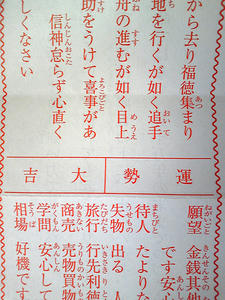 から去り福徳集まり
地を行くが如く追手
舟の進むが如く目上
助をうけて喜事があ
信神怠らず心直く
しくなさい
運勢大吉
願望 金銭其他
です安
待人 たよりな
失物 出る 人
旅行 行先利徳
商売 売物買物
学問 安心して
相場 好機で